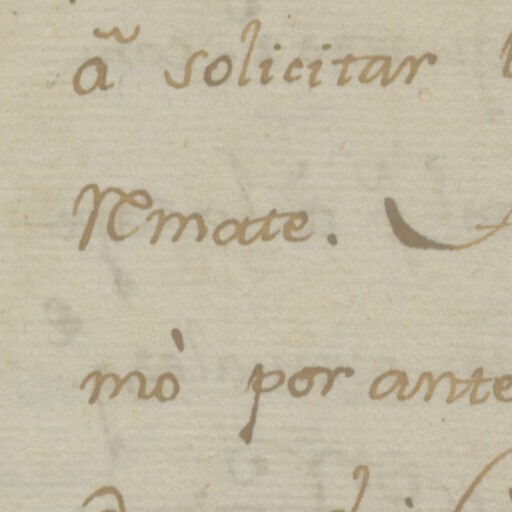 ã solicitar
Remate.
mò por ante